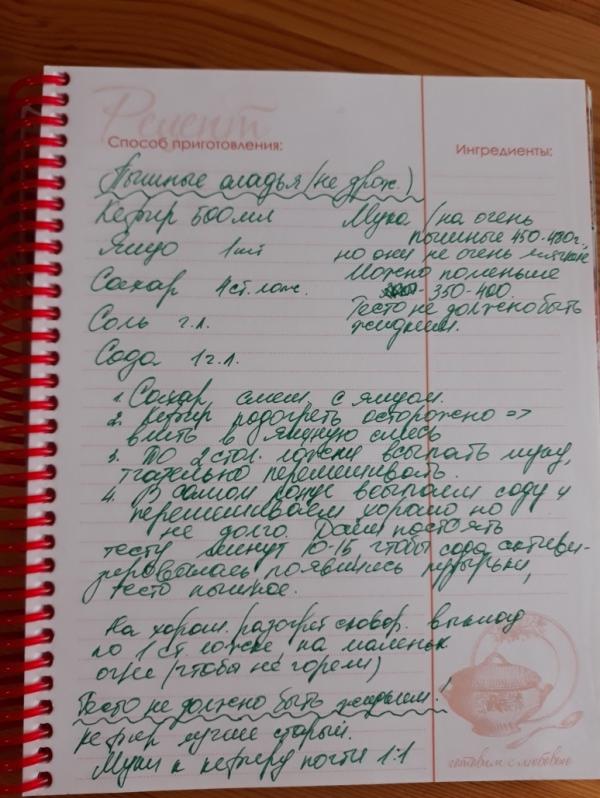 Рецепт
Способ приготовления:
Ингредиенты:
Пышные оладья (не дрож.)
Кефир 500 мл
Яйцо 1 шт
Сахар 4 ст. лож.
Соль ч.л.
Сода 1 ч.л.
Мука (на очень
пышные 450-480 г,
но они не очень мягкие
Можно поменьше
350-400.
Тесто не должно быть
жидким.
1. Сахар смеш. с яйцом.
2. Кефир подогреть осторожно =>
влить в яичную смесь
3. По 2 стол. ложки всыпать муку,
тщательно перемешивать.
4. В самом конце всыпаем соду и
перемешиваем хорошо но
не долго. Даём постоять
тесту минут 10-15, чтобы сода активи-
зировалась, появились пузырьки,
тесто пышное.
На хорош. разогрет сковор. выклад
по 1 ст. ложке, на маленьк
огне (чтобы не горели)
Тесто не должно быть жидким!
Кефир лучше старый.
Муки к кефиру почти 1:1
готовим с любовью